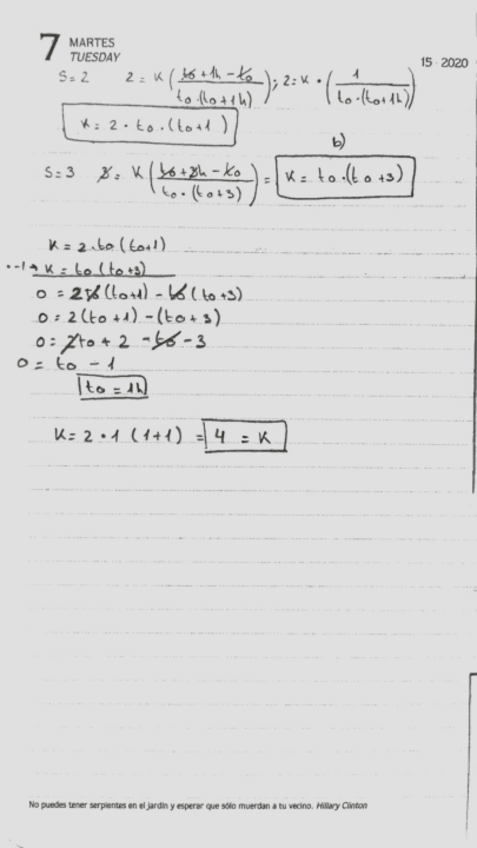 7 MARTES
TUESDAY
15 · 2020
S=2 2= K (to+1h-to / to·(to+1h)); 2=K·(1 / to·(to+1h))
K = 2·to·(to+1)
b)
S=3 3= K (to+3h-to / to·(to+3)) = K= to·(to+3)
K=2·to(to+1)
·-1→ K=to(to+3)
0=2to(to+1)-to(to+3)
0=2(to+1)-(to+3)
0=2to+2-to-3
0= to-1
to=1h
K=2·1(1+1)= 4 = K
No puedes tener serpientes en el jardín y esperar que sólo muerdan a tu vecino. Hillary Clinton